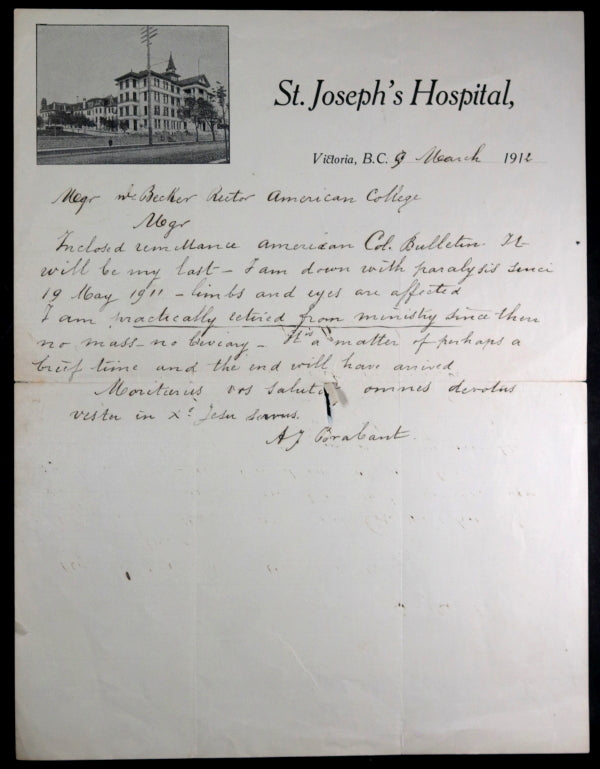 St. Joseph's Hospital,
Victoria, B.C. 9 March 1912
Mgr de Becker Rector American College
Mgr
Inclosed remittance American Col. Bulletin. It
will be my last – I am down with paralysis since
19 May 1911 – limbs and eyes are affected
I am practically retired from ministry since then
no mass – no breviary – It's a matter of perhaps a
brief time and the end will have arrived
Moriturus vos salutat omnes devotus
vester in Xº Jesu servus.
A J Brabant